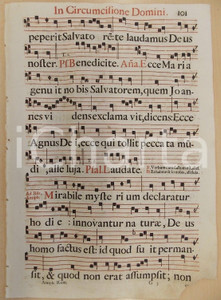 In Circumcisione Domini. 101
peperit Salvato rē: te laudamus Deus
noster. Ps. Benedicite. Aña. Ecce Maria
genu it no bis Salvatorem, quem Joan-
nes vi dens exclama vit, dicens: Ecce
Agnus De i, ecce qui tollit pecca ta mũ-
di, alle luja. Psal. Laudate.
Mirabile myste ri um declaratur
ho di e: innovantur na turæ, De us
homo factus est: id quod fu it perman-
sit, & quod non erat assumpsit; non